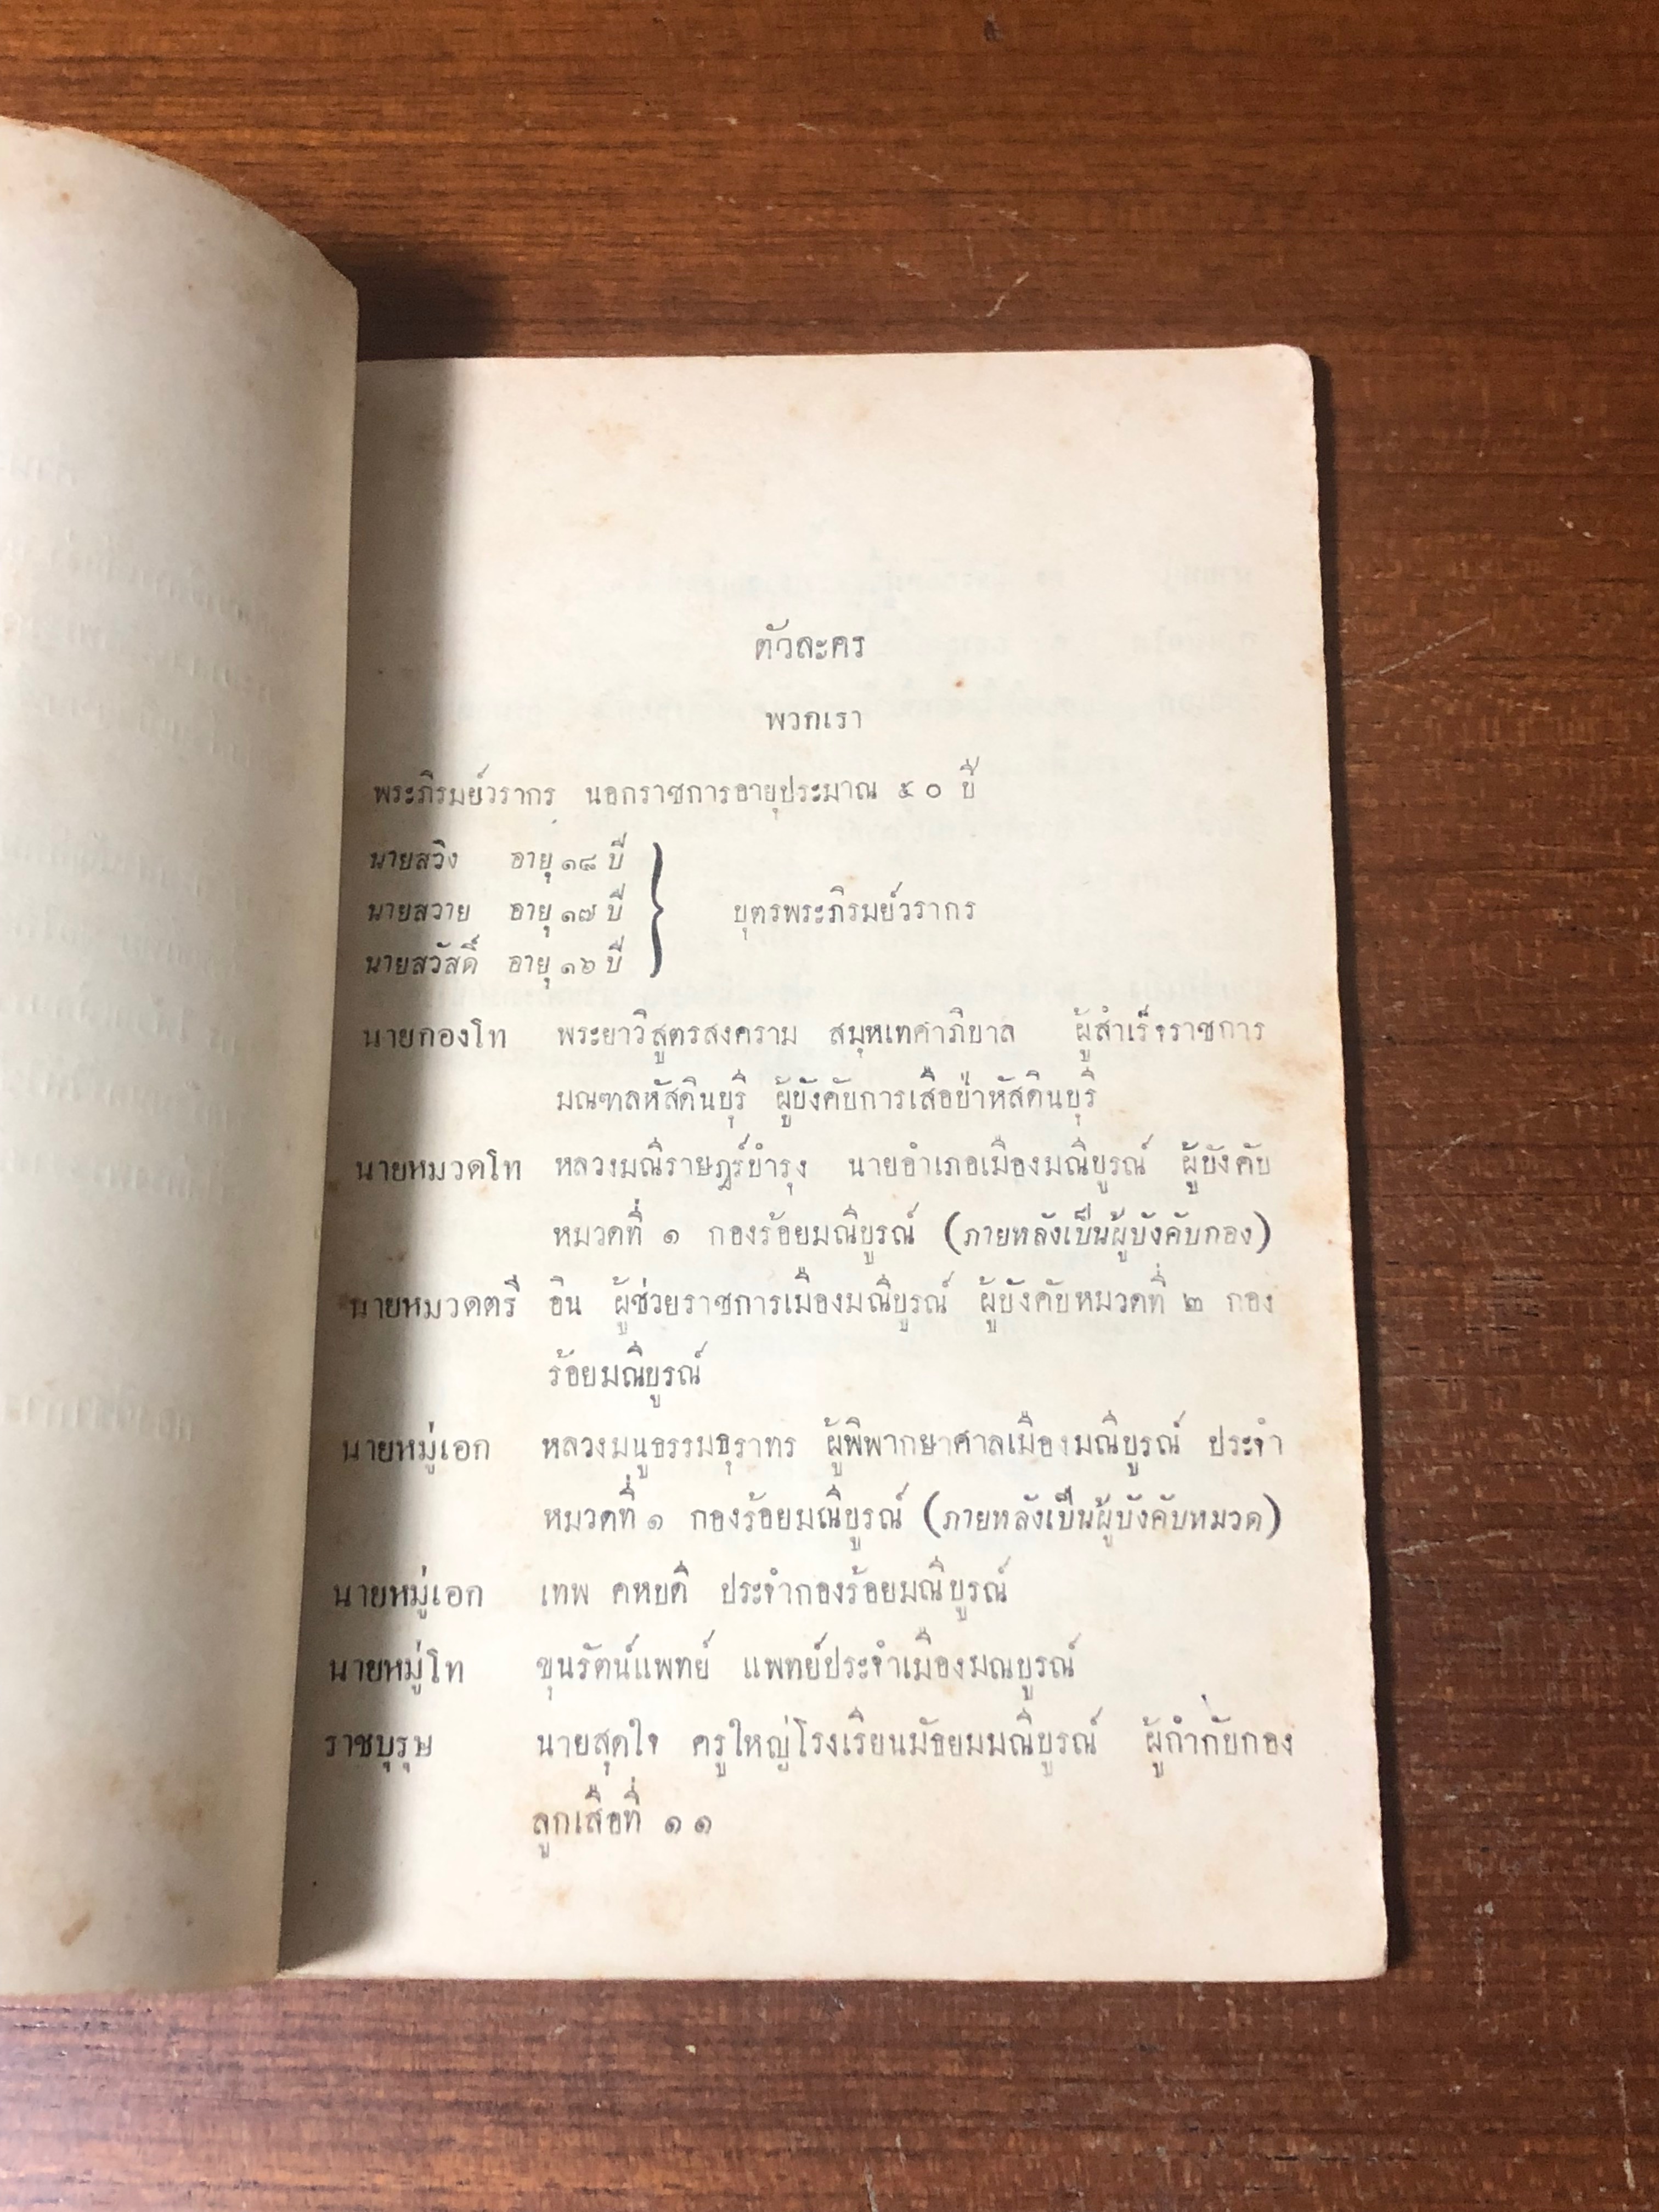 ตัวละคร
พวกเรา
พระภิรมย์วรากร นอกราชการอายุประมาณ ๕๐ ปี
นายสวิง อายุ ๑๘ ปี
นายสวาย อายุ ๑๗ ปี
บุตรพระภิรมย์วรากร
นายสวัสดิ์ อายุ ๑๖ ปี
นายกองโท พระยาวิสูตรสงคราม สมุหเทศาภิบาล ผู้สำเร็จราชการ
มณฑลหัสดินบุรี ผู้บังคับการเสือป่าหัสดินบุรี
นายหมวดโท หลวงมณีราษฎร์บำรุง นายอำเภอเมืองมณีบูรณ์ ผู้บังคับ
หมวดที่ ๑ กองร้อยมณีบูรณ์ (ภายหลังเป็นผู้บังคับกอง)
นายหมวดตรี อิน ผู้ช่วยราชการเมืองมณีบูรณ์ ผู้บังคับหมวดที่ ๒ กอง
ร้อยมณีบูรณ์
นายหมู่เอก หลวงมนูธรรมธุราทร ผู้พิพากษาศาลเมืองมณีบูรณ์ ประจำ
หมวดที่ ๑ กองร้อยมณีบูรณ์ (ภายหลังเป็นผู้บังคับหมวด)
นายหมู่เอก เทพ คหบดี ประจำกองร้อยมณีบูรณ์
นายหมู่โท ขุนรัตน์แพทย์ แพทย์ประจำเมืองมณบูรณ์
ราชบุรุษ นายสุดใจ ครูใหญ่โรงเรียนมัธยมมณีบูรณ์ ผู้กำกับกอง
ลูกเสือที่ ๑๑